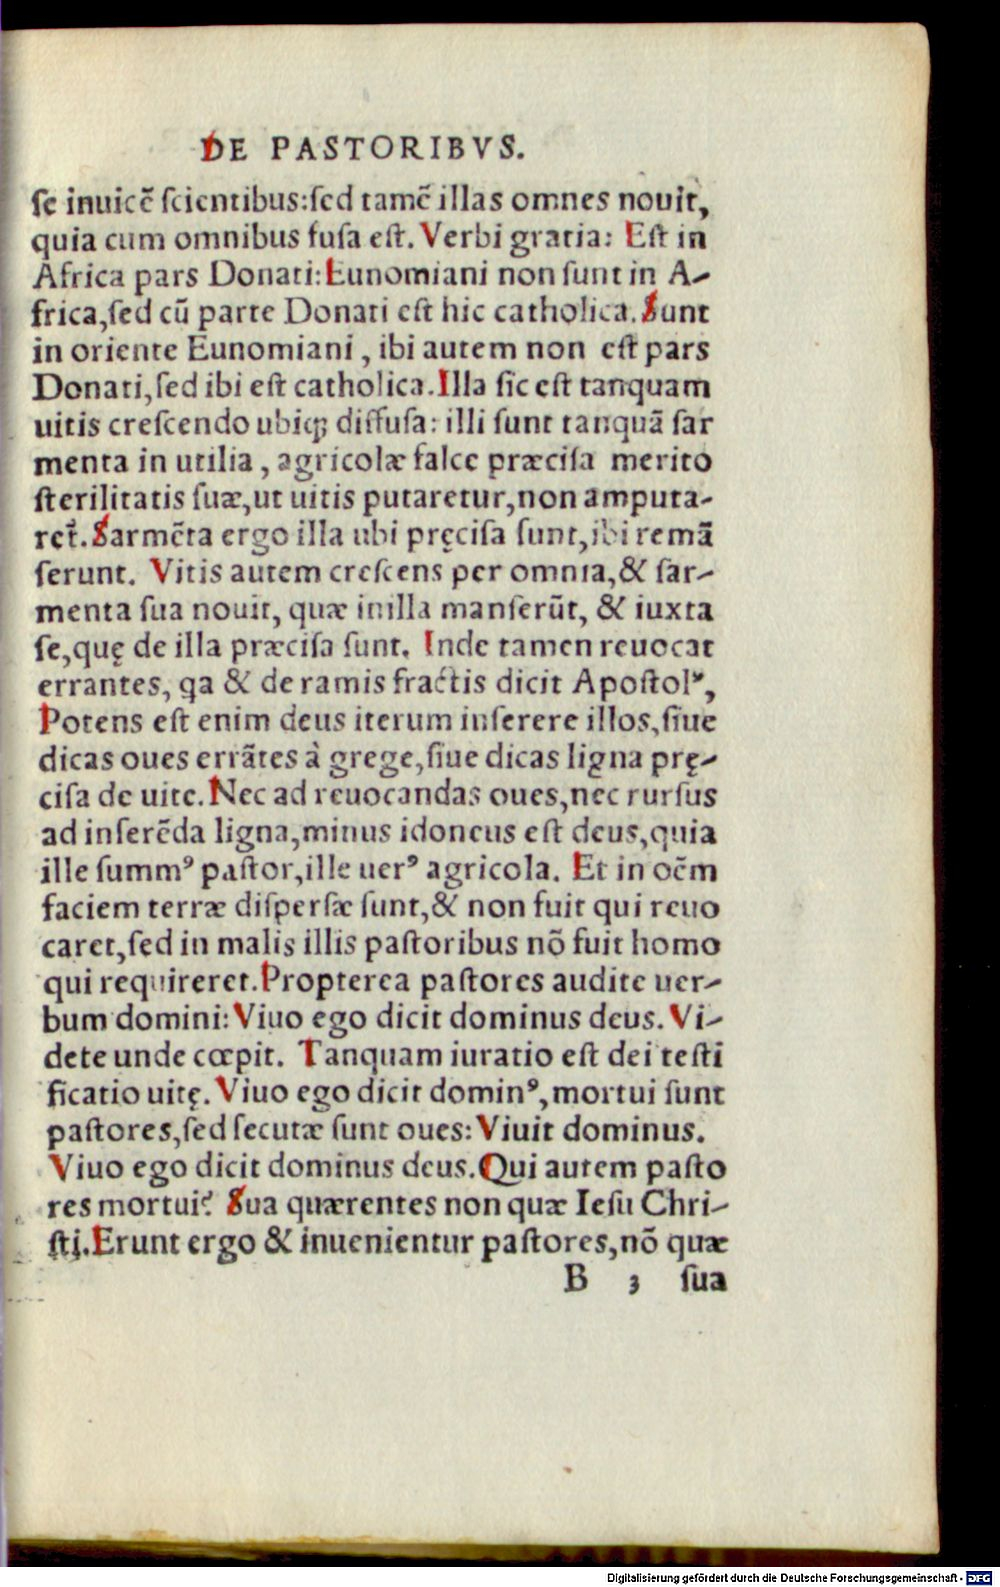 DE PASTORIBVS.
ſe inuicē ſcientibus:ſed tamē illas omnes nouit,
quia cum omnibus fuſa eſt. Verbi gratia: Eſt in
Africa pars Donati:Eunomiani non ſunt in A-
frica,ſed cū parte Donati eſt hic catholica.Sunt
in oriente Eunomiani, ibi autem non eſt pars
Donati,ſed ibi eſt catholica.Illa ſic eſt tanquam
uitis creſcendo ubiqꝫ diffuſa: illi ſunt tanquā ſar
menta in utilia, agricolæ falce præciſa merito
ſterilitatis ſuæ,ut uitis putaretur,non amputa-
ret᷑.Sarmēta ergo illa ubi pręciſa ſunt,ibi remā
ſerunt. Vitis autem creſcens per omnia,& ſar-
menta ſua nouit, quæ inilla manſerūt, & iuxta
ſe,quę de illa præciſa ſunt. Inde tamen reuocat
errantes, ꝗa & de ramis fractis dicit Apoſtolꝰ,
Potens eſt enim deus iterum inſerere illos,ſiue
dicas oues errātes à grege,ſiue dicas ligna prę-
ciſa de uite.Nec ad reuocandas oues,nec rurſus
ad inſerēda ligna,minus idoneus eſt deus,quia
ille ſummꝰ paſtor,ille uerꝰ agricola. Et in oēm
faciem terræ diſperſæ ſunt,& non fuit qui reuo
caret,ſed in malis illis paſtoribus nō fuit homo
qui requireret.Propterea paſtores audite uer-
bum domini:Viuo ego dicit dominus deus.Vi-
dete unde cœpit. Tanquam iuratio eſt dei teſti
ficatio uitę.Viuo ego dicit dominꝰ,mortui ſunt
paſtores,ſed ſecutæ ſunt oues:Viuit dominus.
Viuo ego dicit dominus deus.Qui autem paſto
res mortui? Sua quærentes non quæ Ieſu Chri-
ſti.Erunt ergo & inuenientur paſtores,nō quæ
B 3 ſua
Digitalisierung gefördert durch die Deutsche Forschungsgemeinschaft - DFG